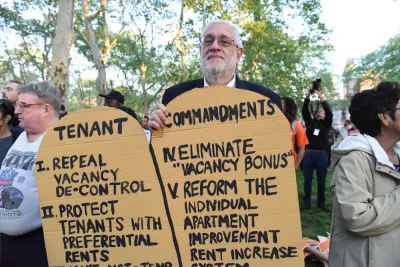 TENANT
I. REPEAL
VACANCY
DE-CONTROL
II. PROTECT
TENANTS WITH
PREFERENTIAL
RENTS
COMMANDMENTS
IV. ELIMINATE
"VACANCY BONUS"
V. REFORM THE
INDIVIDUAL
APARTMENT
IMPROVEMENT
RENT INCREASE
SYSTEM